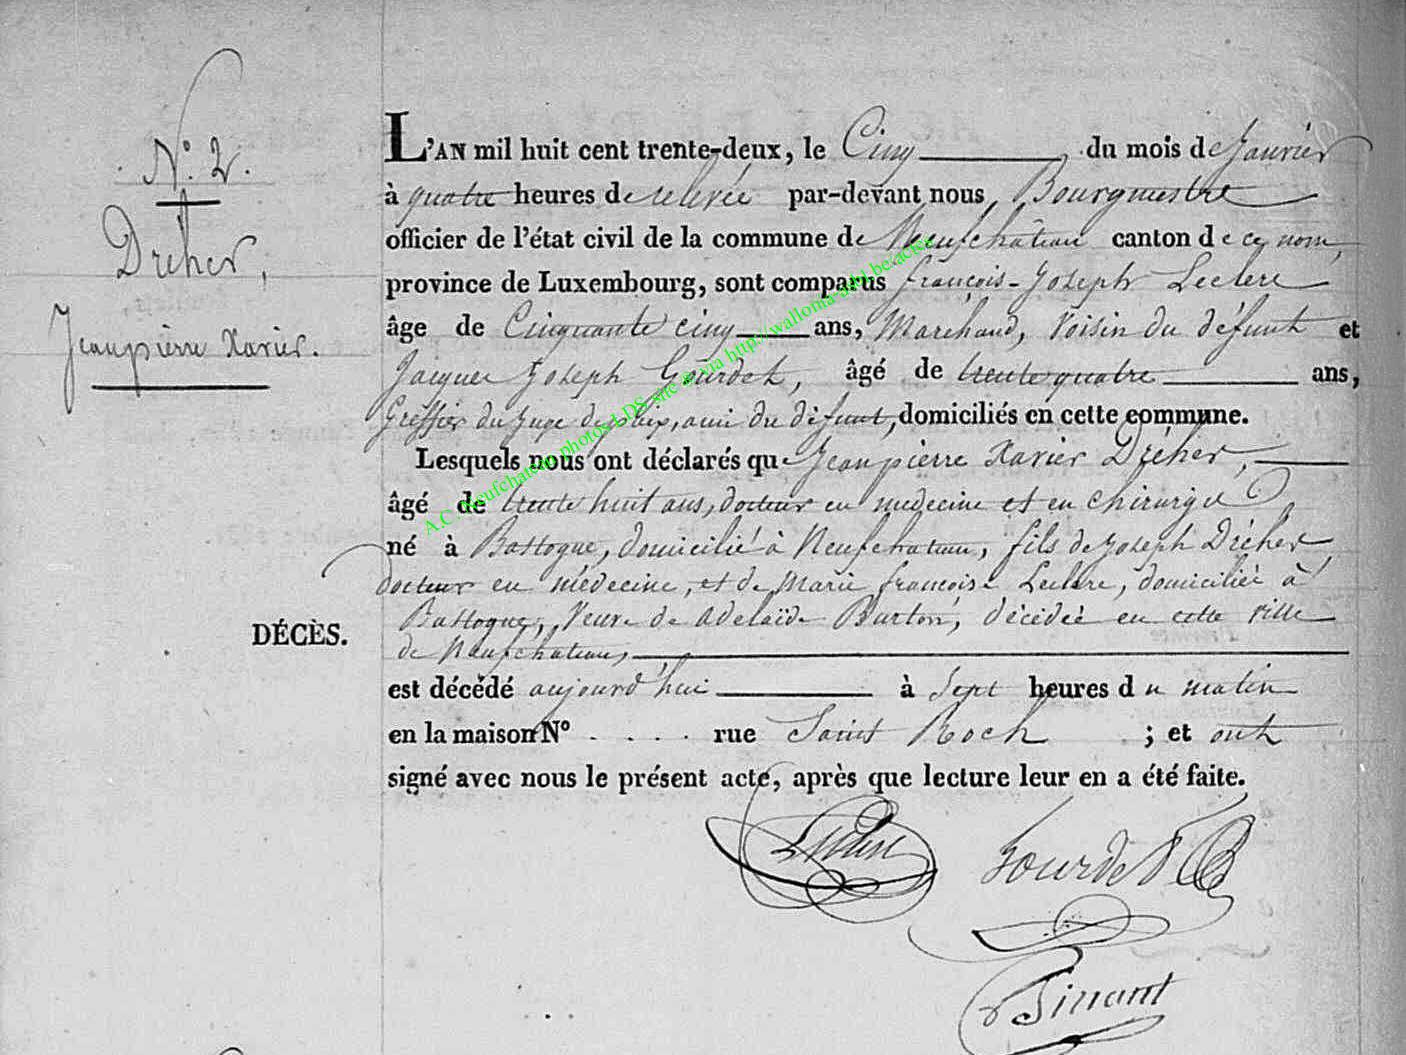 N.° 2.
Dréher,
Jeanpierre Xavier.
L'AN mil huit cent trente-deux, le Cinq du mois de Janvier
à quatre heures de relevée par-devant nous Bourgmestre
officier de l'état civil de la commune de Neufchâteau canton de ce nom,
province de Luxembourg, sont comparus françois-Joseph Leclere
âge de Cinquante cinq ans, Marchand, Voisin du défunt et
Jacques Joseph Gourdet, âgé de trente quatre ans,
Greffier du Juge de paix, ami du défunt, domiciliés en cette commune.
Lesquels nous ont déclarés que Jeanpierre Xavier Dréher,
âgé de trente huit ans, docteur en medecine et en chirurgie
né à Bastogne, domicilié à Neufchateau, fils de Joseph Dréher,
docteur en médecine, et de Marie françoise Leclere, domiciliée à
Bastogne, Veuve de Adelaïde Burton, décédée en cette ville
de Neufchateau,
DÉCÈS.
est décédé aujourd'hui à Sept heures du matin
en la maison N° . . . . rue Saint Roch ; et ont
signé avec nous le présent acte, après que lecture leur en a été faite.
Gourdet
Pinant
A.C. Neufchateau photos LDS, site & via http://wallonia-asbl.be/actes